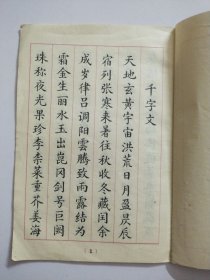 千字文
天地玄黄宇宙洪荒日月盈昃辰
宿列张寒来暑往秋收冬藏闰余
成岁律吕调阳雲腾致雨露结为
霜金生丽水玉出崑冈剑号巨阙
珠称夜光果珍李柰菜重芥姜海
(1)